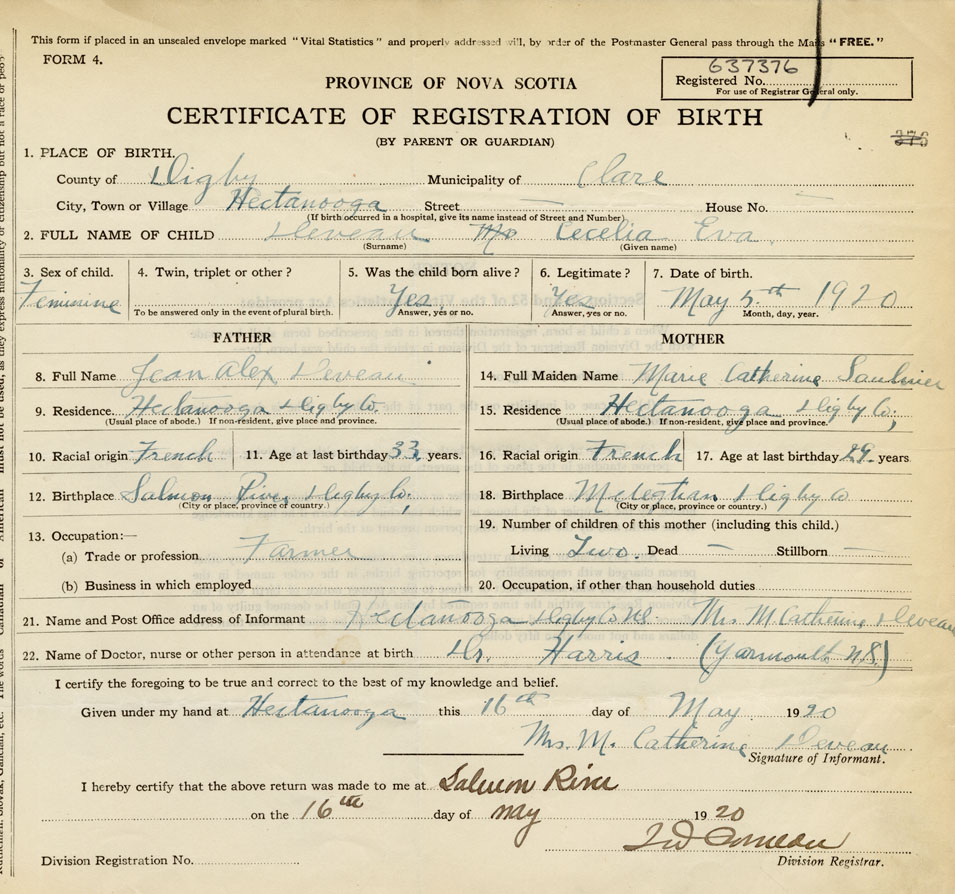 This form if placed in an unsealed envelope marked "Vital Statistics" and properly addressed will, by order of the Postmaster General pass through the Mails "FREE."
FORM 4.
637376
Registered No.
For use of Registrar General only.
PROVINCE OF NOVA SCOTIA
CERTIFICATE OF REGISTRATION OF BIRTH
(BY PARENT OR GUARDIAN)
1. PLACE OF BIRTH.
County of Digby Municipality of Clare
City, Town or Village Hectanooga Street — House No. —
(If birth occurred in a hospital, give its name instead of Street and Number)
2. FULL NAME OF CHILD Deveau Cecelia Eva
(Surname) (Given name)
3. Sex of child. 4. Twin, triplet or other? 5. Was the child born alive? 6. Legitimate? 7. Date of birth.
Feminine Yes Yes May 5th 1920
To be answered only in the event of plural birth. Answer, yes or no. Answer, yes or no. Month, day, year.
FATHER MOTHER
8. Full Name Jean Alex Deveau 14. Full Maiden Name Marie Catherine Saulnier
9. Residence. Hectanooga Digby Co. 15. Residence Hectanooga Digby Co;
(Usual place of abode.) If non-resident, give place and province. (Usual place of abode.) If non-resident, give place and province.
10. Racial origin French 11. Age at last birthday 33 years. 16. Racial origin French 17. Age at last birthday 29. years
12. Birthplace Salmon River Digby Co; 18. Birthplace Digby Co
(City or place, province or country.) (City or place, province or country.)
13. Occupation:— 19. Number of children of this mother (including this child.)
(a) Trade or profession Farmer Living Two. Dead — Stillborn —
(b) Business in which employed 20. Occupation, if other than household duties
21. Name and Post Office address of Informant Hectanooga Digby Co NS Mrs M Catherine Deveau
22. Name of Doctor, nurse or other person in attendance at birth Dr. Harris (Yarmouth N.S.)
I certify the foregoing to be true and correct to the best of my knowledge and belief.
Given under my hand at Hectanooga this 16th day of May 1920
Mrs. M. Catherine Deveau
Signature of Informant.
I hereby certify that the above return was made to me at Salmon River
on the 16th day of May 1920
Comeau
Division Registrar.
Division Registration No.